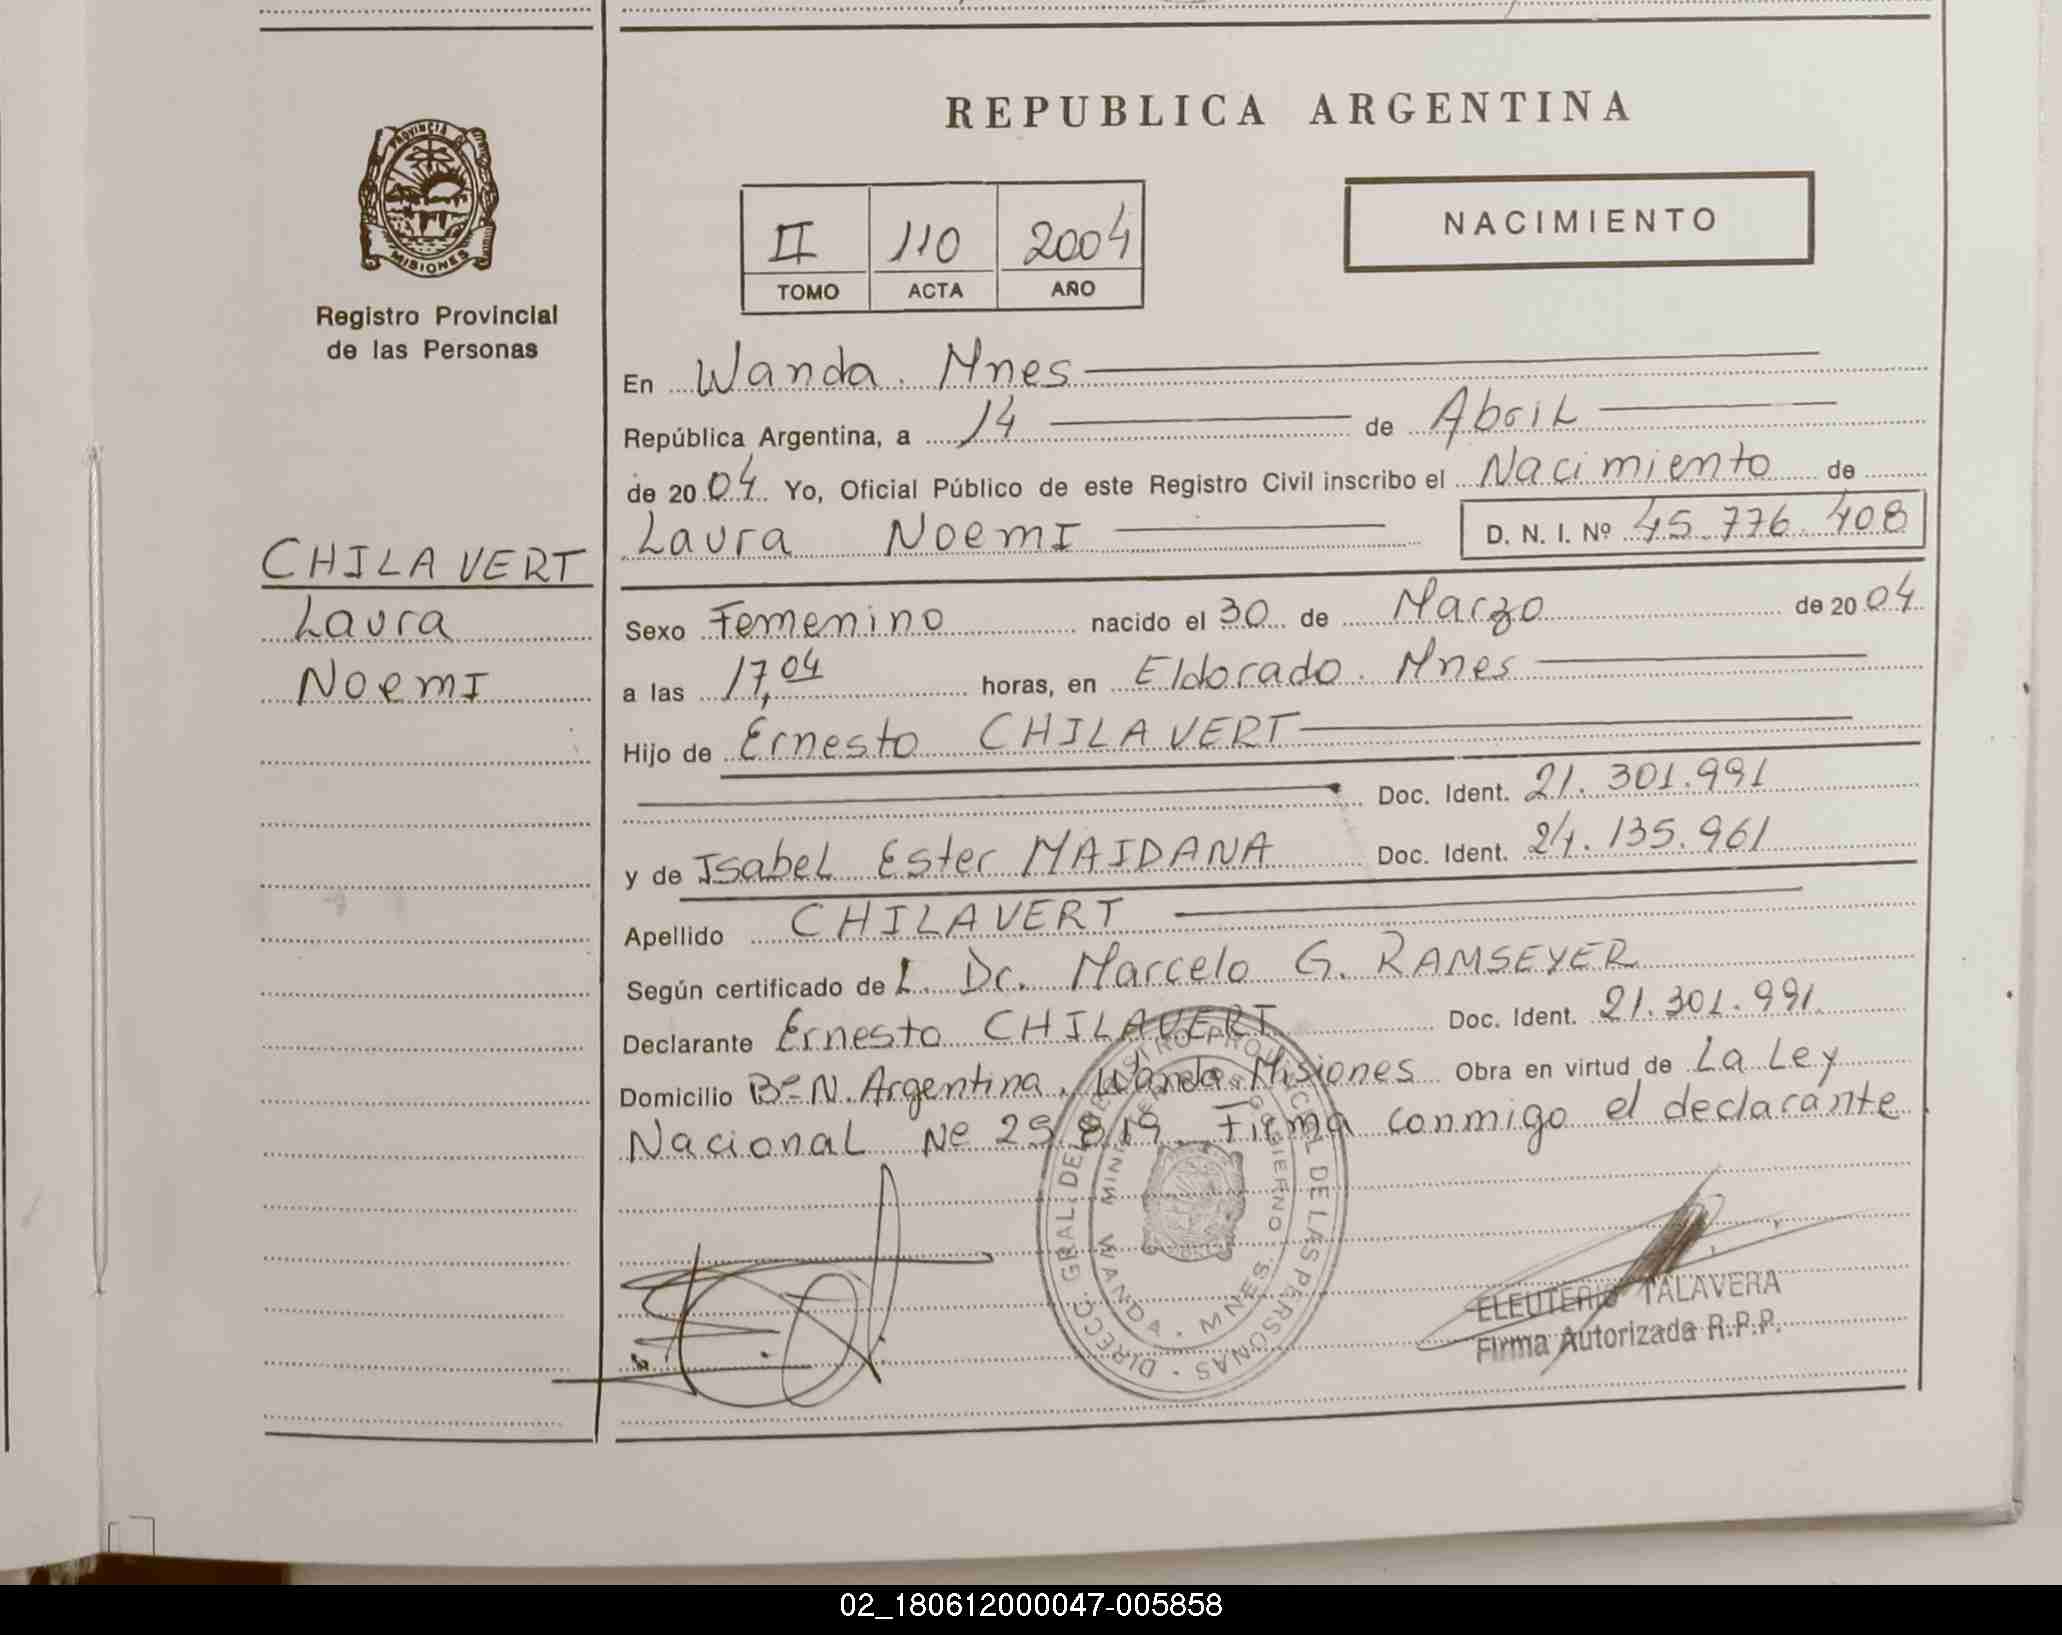 REPUBLICA ARGENTINA
PROVINCIA DE
MISIONES
Registro Provincial
de las Personas
II 110 2004
TOMO ACTA AÑO
NACIMIENTO
En Wanda. Mnes
República Argentina, a 14 de Abril
de 2004. Yo, Oficial Público de este Registro Civil inscribo el Nacimiento de
Laura Noemi D. N. I. Nº 45.776.408
CHILAVERT
Laura
Noemi
Sexo Femenino nacido el 30 de Marzo de 2004
a las 17,04 horas, en Eldorado. Mnes
Hijo de Ernesto CHILAVERT
Doc. Ident. 21.301.991
y de Isabel Ester MAIDANA Doc. Ident. 24.135.961
Apellido CHILAVERT
Según certificado de L. Dr. Marcelo G. RAMSEYER
Declarante Ernesto CHILAVERT Doc. Ident. 21.301.991.
Domicilio Bº N. Argentina. Wanda. Misiones Obra en virtud de La Ley
Nacional Nº Firma conmigo el declarante
DIRECC. GRAL. DEL REGISTRO PROVINCIAL DE LAS PERSONAS
GOBIERNO
WANDA - MNES.
ELEUTERIO TALAVERA
Firma Autorizada R.P.P.
02_180612000047-005858